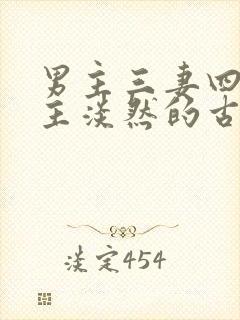 男主三妻四
主淡然的古
淡定454